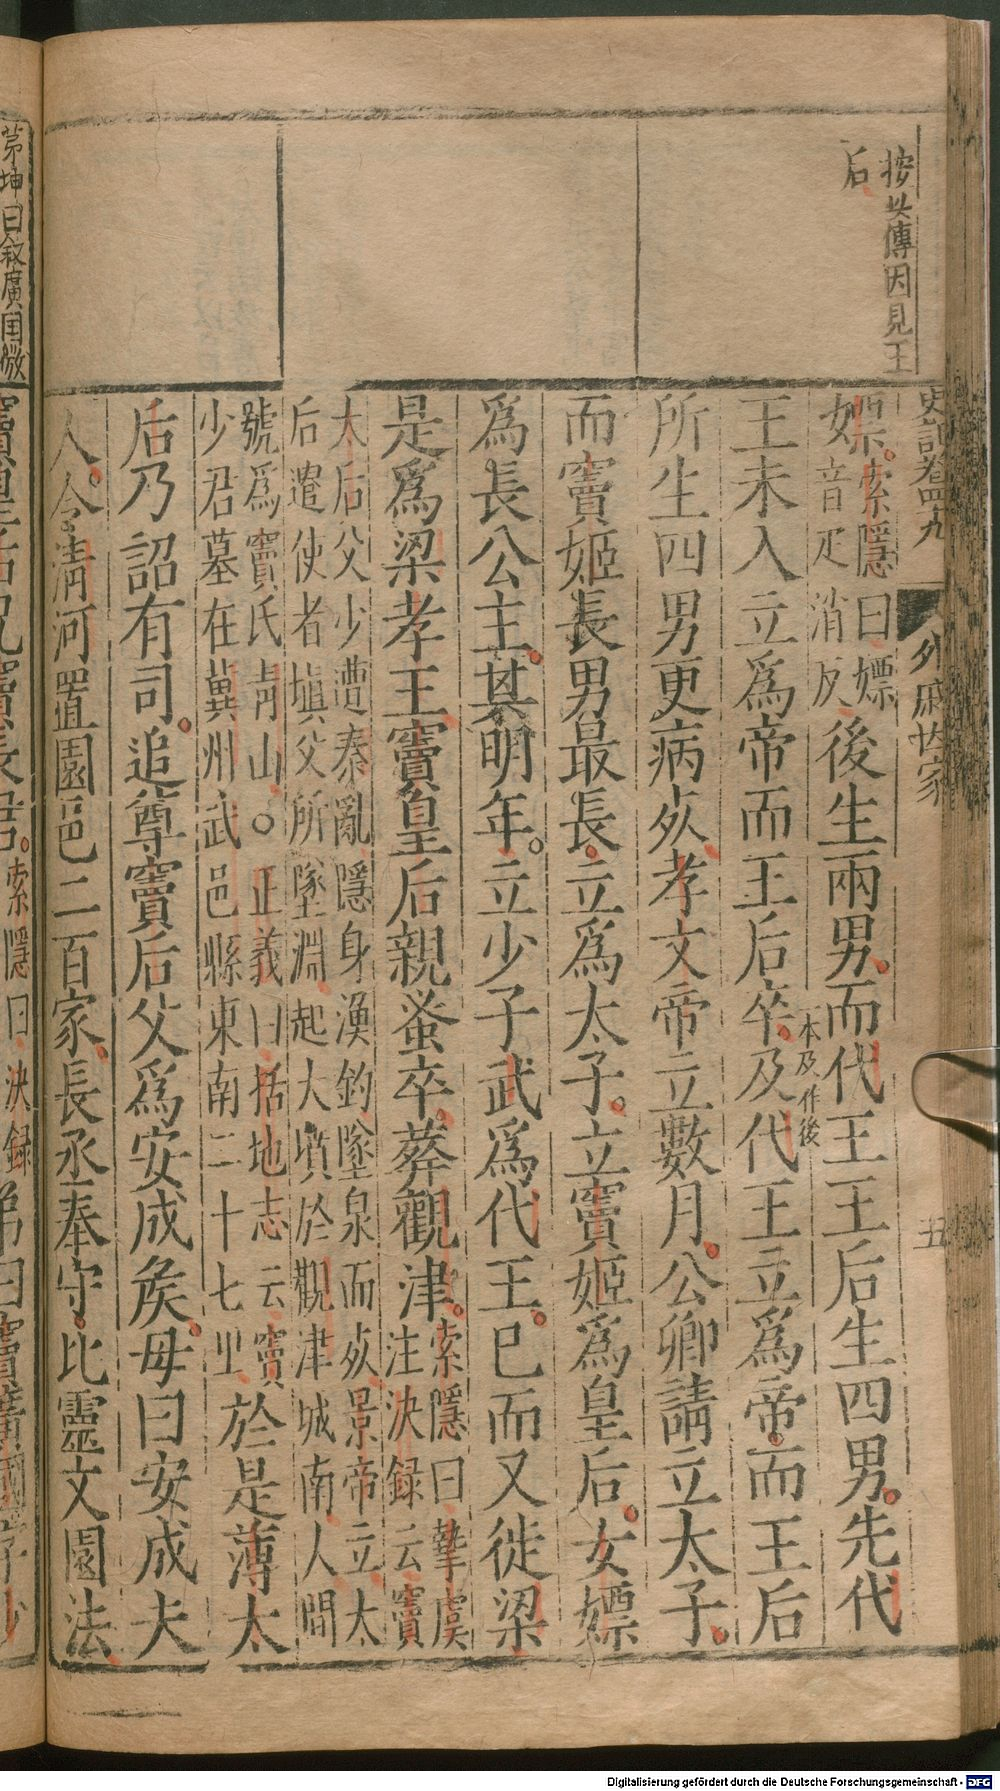 史記卷四十九
外戚世家
五
按此傳因見王
后
嫖。索隱曰嫖
音疋消反後生兩男。而代王王后生四男。先代
王未入立爲帝而王后卒。及代王立爲帝。而王后
本及作後
所生四男更病死。孝文帝立數月。公卿請立太子。
而竇姬長男最長。立爲太子。立竇姬爲皇后。女嫖
爲長公主。其明年。立少子武爲代王。已而又徙梁
是爲梁孝王竇皇后親蚤卒。葬觀津。索隱曰摯虞
注決録云竇
太后父少遭秦亂隱身漁釣墜泉而死景帝立太
后遣使者塡父所墜淵起大墳於觀津城南人間
號爲竇氏青山。○正義曰括地志云竇
少君墓在冀州武邑縣東南二十七里於是薄太
后乃詔有司。追尊竇后父爲安成矦。母曰安成夫
人。令清河置園邑二百家。長丞奉守。比靈文園法
茅坤曰叙廣国微
竇皇后兄竇長君。索隱曰決録
弟曰竇廣國字少
Digitalisierung gefördert durch die Deutsche Forschungsgemeinschaft - DFG